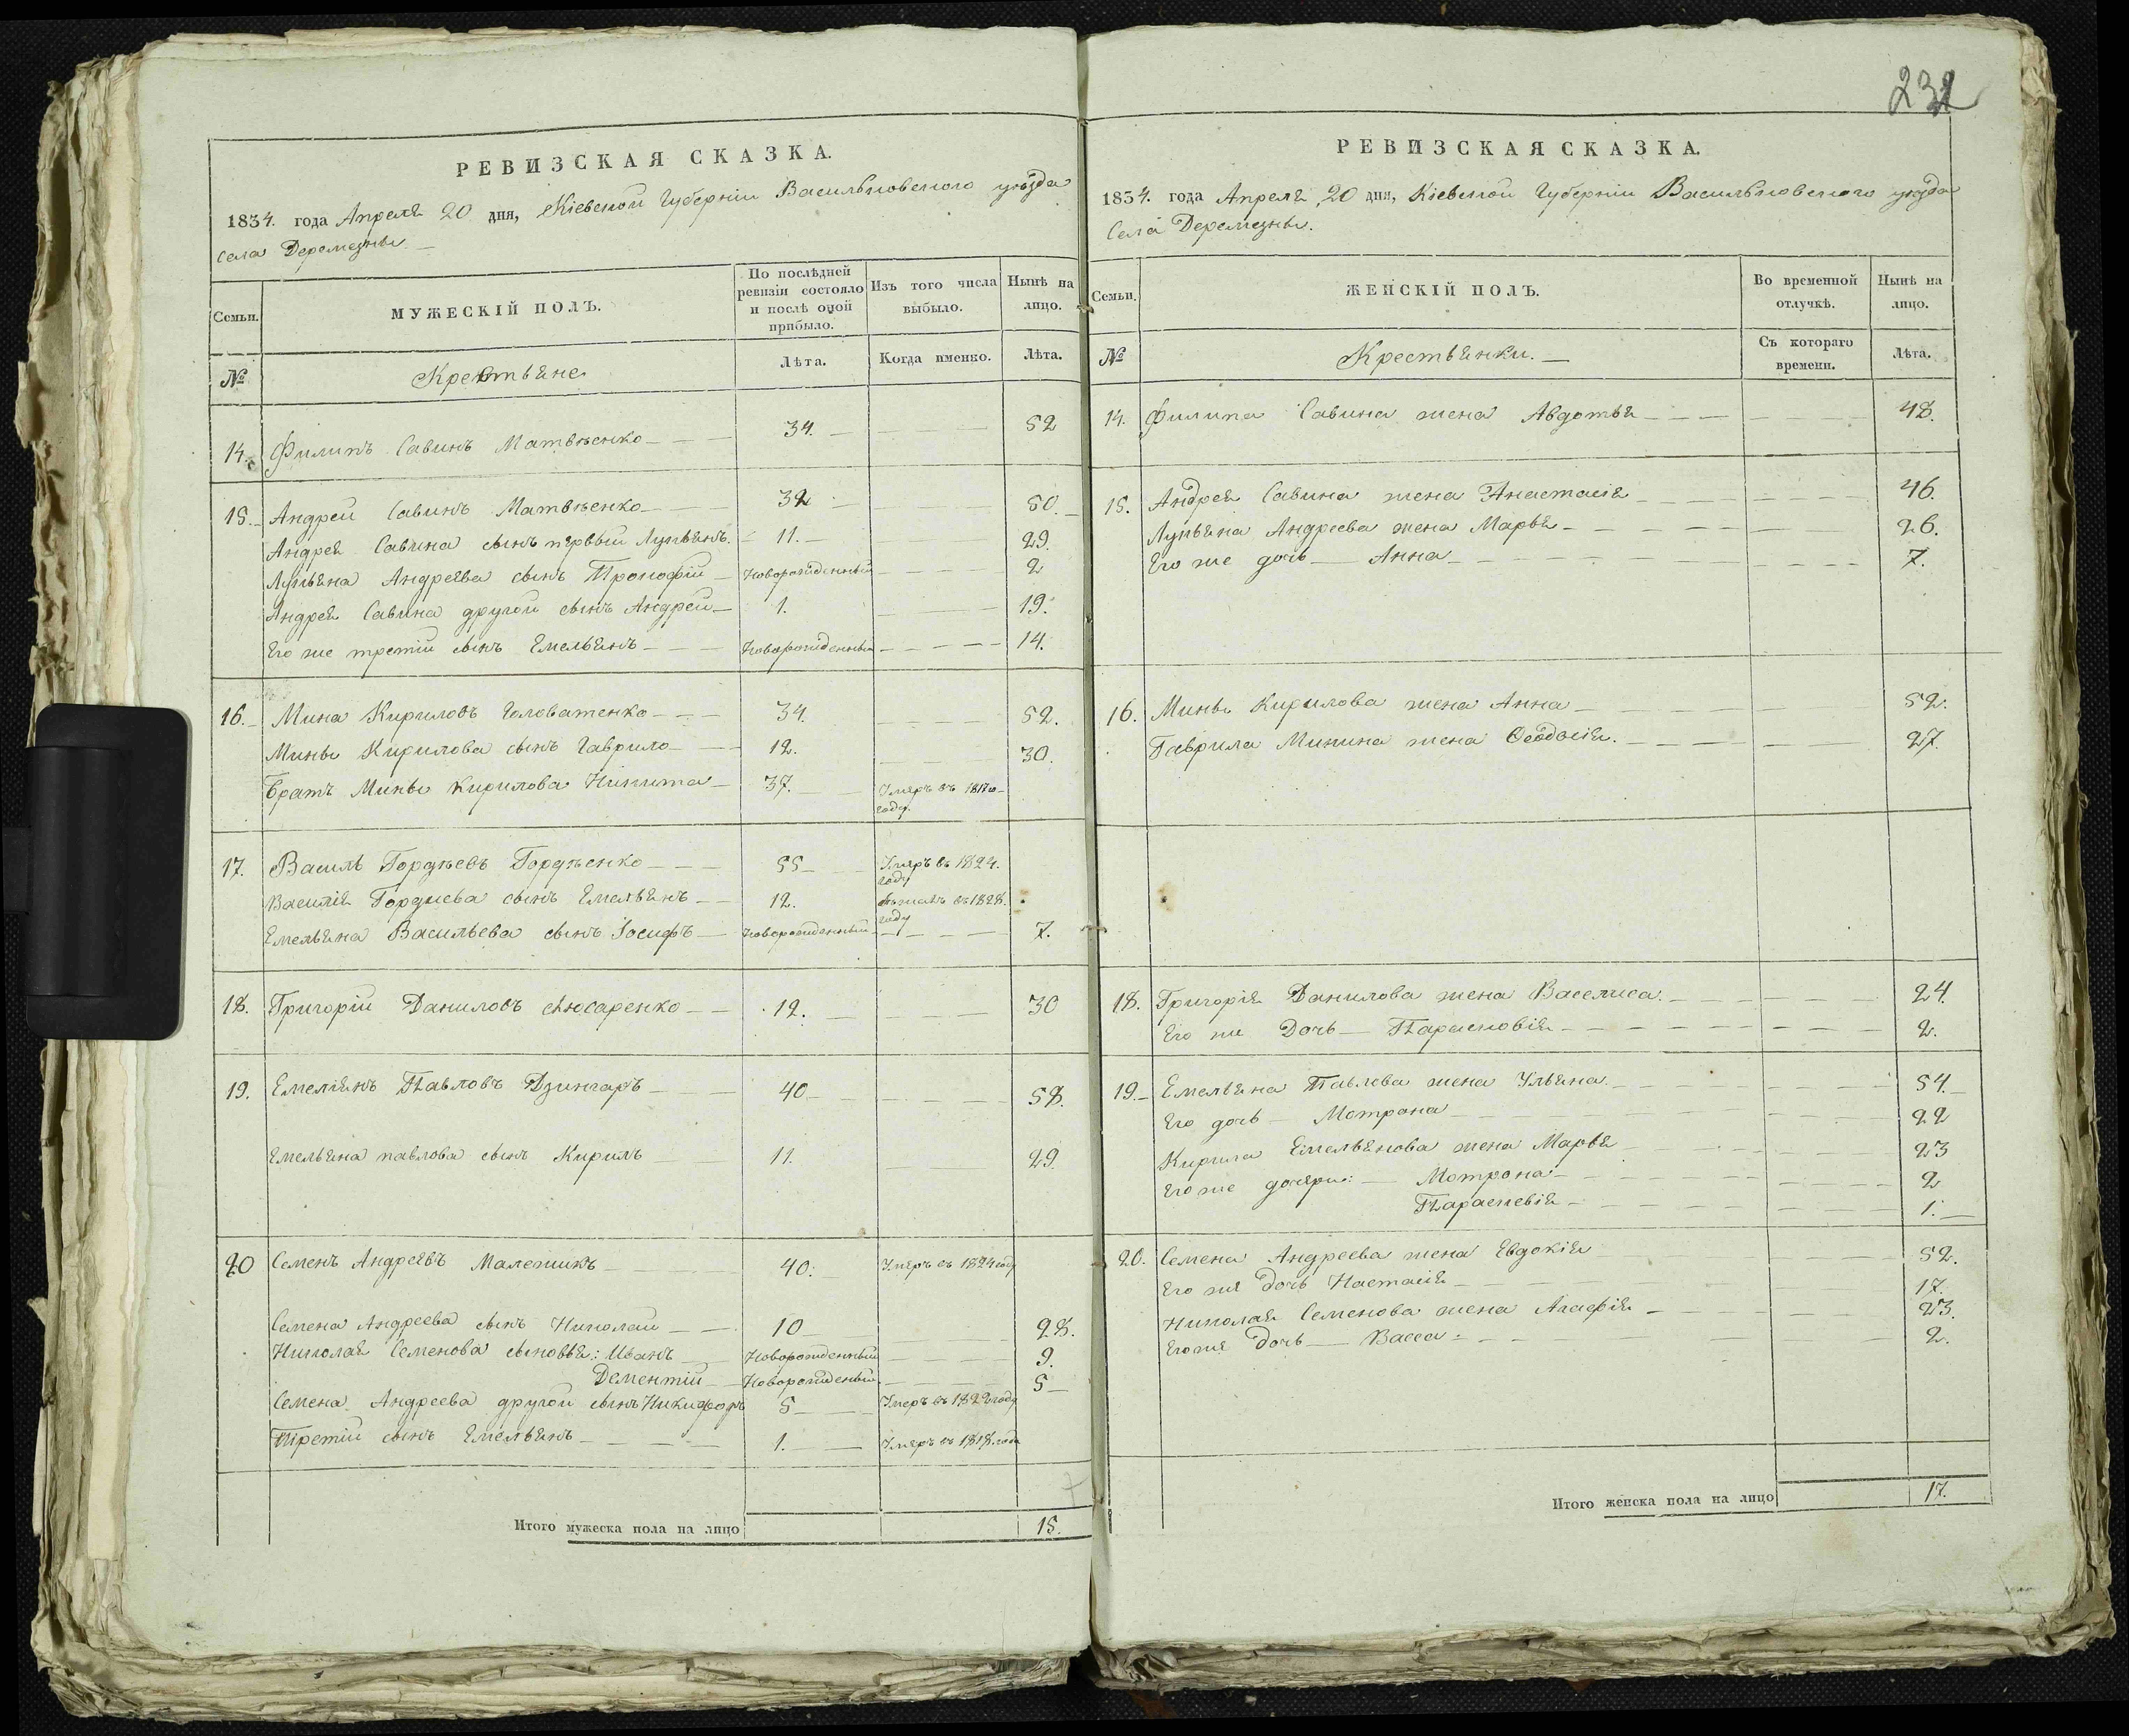 232
РЕВИЗСКАЯ СКАЗКА.
1834. года Апреля 20 дня, Кіевской Губерніи Васильковского уѣзда
села Деремезны.
Семьи.
МУЖЕСКІЙ ПОЛЪ.
По послѣдней
ревизіи состояло
и послѣ оной
прибыло.
Изъ того числа
выбыло.
Нынѣ на
лицо.
№
Крестьяне
Лѣта.
Когда именно.
Лѣта.
14. Филипъ Савинъ Матвѣенко 34. 52
15. Андрей Савинъ Матвѣенко 32 50.
Андрея Савина сынъ первый Лукьянъ. 11. 29.
Лукьяна Андреева сынъ Прокофій Новорожденный 2
Андрея Савина другой сынъ Андрей 1. 19.
Его же третій сынъ Емельянъ Новорожденный 14.
16. Мина Кириловъ Головатенко 34. 52.
Мины Кирилова сынъ Гаврило 12. 30.
Братъ Мины Кирилова Никита 37. Умеръ въ 1817
году.
17. Василь Гордѣевъ Гордѣенко 55 Умеръ въ 1824.
году
Василія Гордиева сынъ Емельянъ 12. бѣжалъ въ 1828.
году
Емельяна Васильева сынъ Іосифъ Новорожденный 7.
18. Григорій Даниловъ 12. 30
19. Емельянъ Павловъ Дзингаръ 40 58.
Емельяна павлова сынъ Кирилъ 11. 29.
20 Семенъ Андреевъ Малежикъ 40. Умеръ въ 1824 году
Семена Андреева сынъ Николай 10 28.
Николая Семенова сыновья: Иванъ Новорожденный 9.
Дементій Новорожденый 5
Семена Андреева другой сынъ Никифоръ 5 Умеръ въ 1822 году
Третій сынъ Емельянъ 1. Умеръ въ 1818. года
Итого мужеска пола на лицо 15.
РЕВИЗСКАЯ СКАЗКА.
1834. года Апреля 20 дня, Кіевской Губерніи Васильковского уѣзда
Села Деремезны.
Семьи.
ЖЕНСКІЙ ПОЛЪ.
Во временной
отлучкѣ.
Нынѣ на
лицо.
№
Крестьянки.
Съ котораго
времени.
Лѣта.
14. Филипа Савина жена Авдотья 48.
15. Андрея Савина жена Анастасія 46.
Лукьяна Андреева жена Марья 26.
Его же дочь Анна 7.
16. Мины Кирилова жена Анна 52.
Гаврила Минина жена Феодосія. 27.
18. Григорія Данилова жена Васелиса. 24.
Его же Дочь Парасковія 2.
19. Емельяна Павлова жена Ульяна. 54.
Его дочь Мотрона 22
Кирила Емельянова жена Марья 23
Его же дочери: Мотрона 2
Параскевія 1.
20. Семена Андреева жена Евдокія 52.
Его же дочь Настасія 17.
Николая Семенова жена Агафія 23.
Его же Дочь Васса 2.
Итого женска пола на лицо 17.